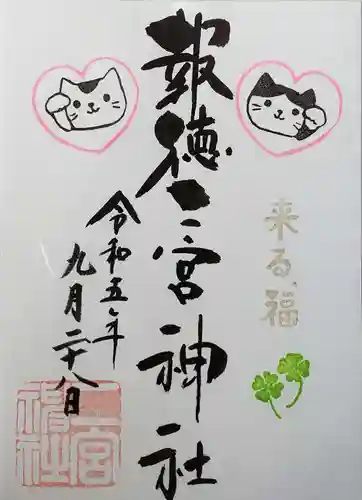 報徳二宮神社
来る、福
令和五年
九月二十八日
二宮
神社